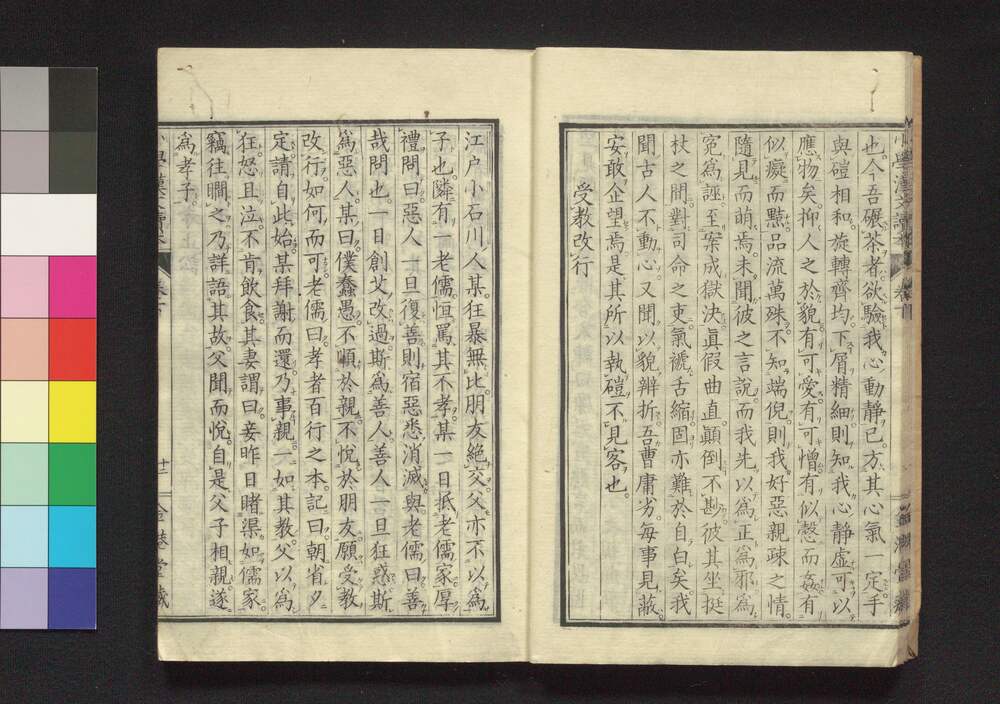 也。今吾碾茶者。欲驗我心動靜已。方其心氣一定。手
與磑相和。旋轉齊均。下屑精細。則知我心靜虛可以
應物矣。抑人之於貌。有可愛有可憎有似慤而姦有
似癡而黠。品流萬殊。不知端倪。則我好惡親疎之情。
隨見而萌焉。未聞彼之言說。而我先以爲正爲邪爲
冤爲誣。至案成獄決。眞假曲直顚倒不尠。彼其坐挺
杖之間。對司命之吏。氣褫舌縮。固亦難於自白矣。我
聞古人不動心。又聞以貌辨折。吾曹庸劣。每事見蔽。
安敢企望焉。是其所以執磑不見客也。
受教改行
江戶小石川人某。狂暴無比。朋友絕交。父亦不以爲
子也。隣有一老儒。恒罵其不孝。某一日抵老儒家。厚
禮問曰。惡人一旦復善。則宿惡悉消滅與。老儒曰。善
哉問也。一日創艾改過。斯爲善人。善人一旦狂惑。斯
爲惡人。某曰。僕蠢愚。不順於親。不悅於朋友。願受教
改行。如何而可。老儒曰。孝者百行之本。記曰。朝省夕
定。請自此始。某拜謝而還。乃事親一如其教。父以爲
狂。怒且泣。不肯飲食。其妻謂曰。妾昨日睹渠如儒家。
竊往瞯之。乃詳語其故。父聞而悅。自是父子相親。遂
爲孝子。